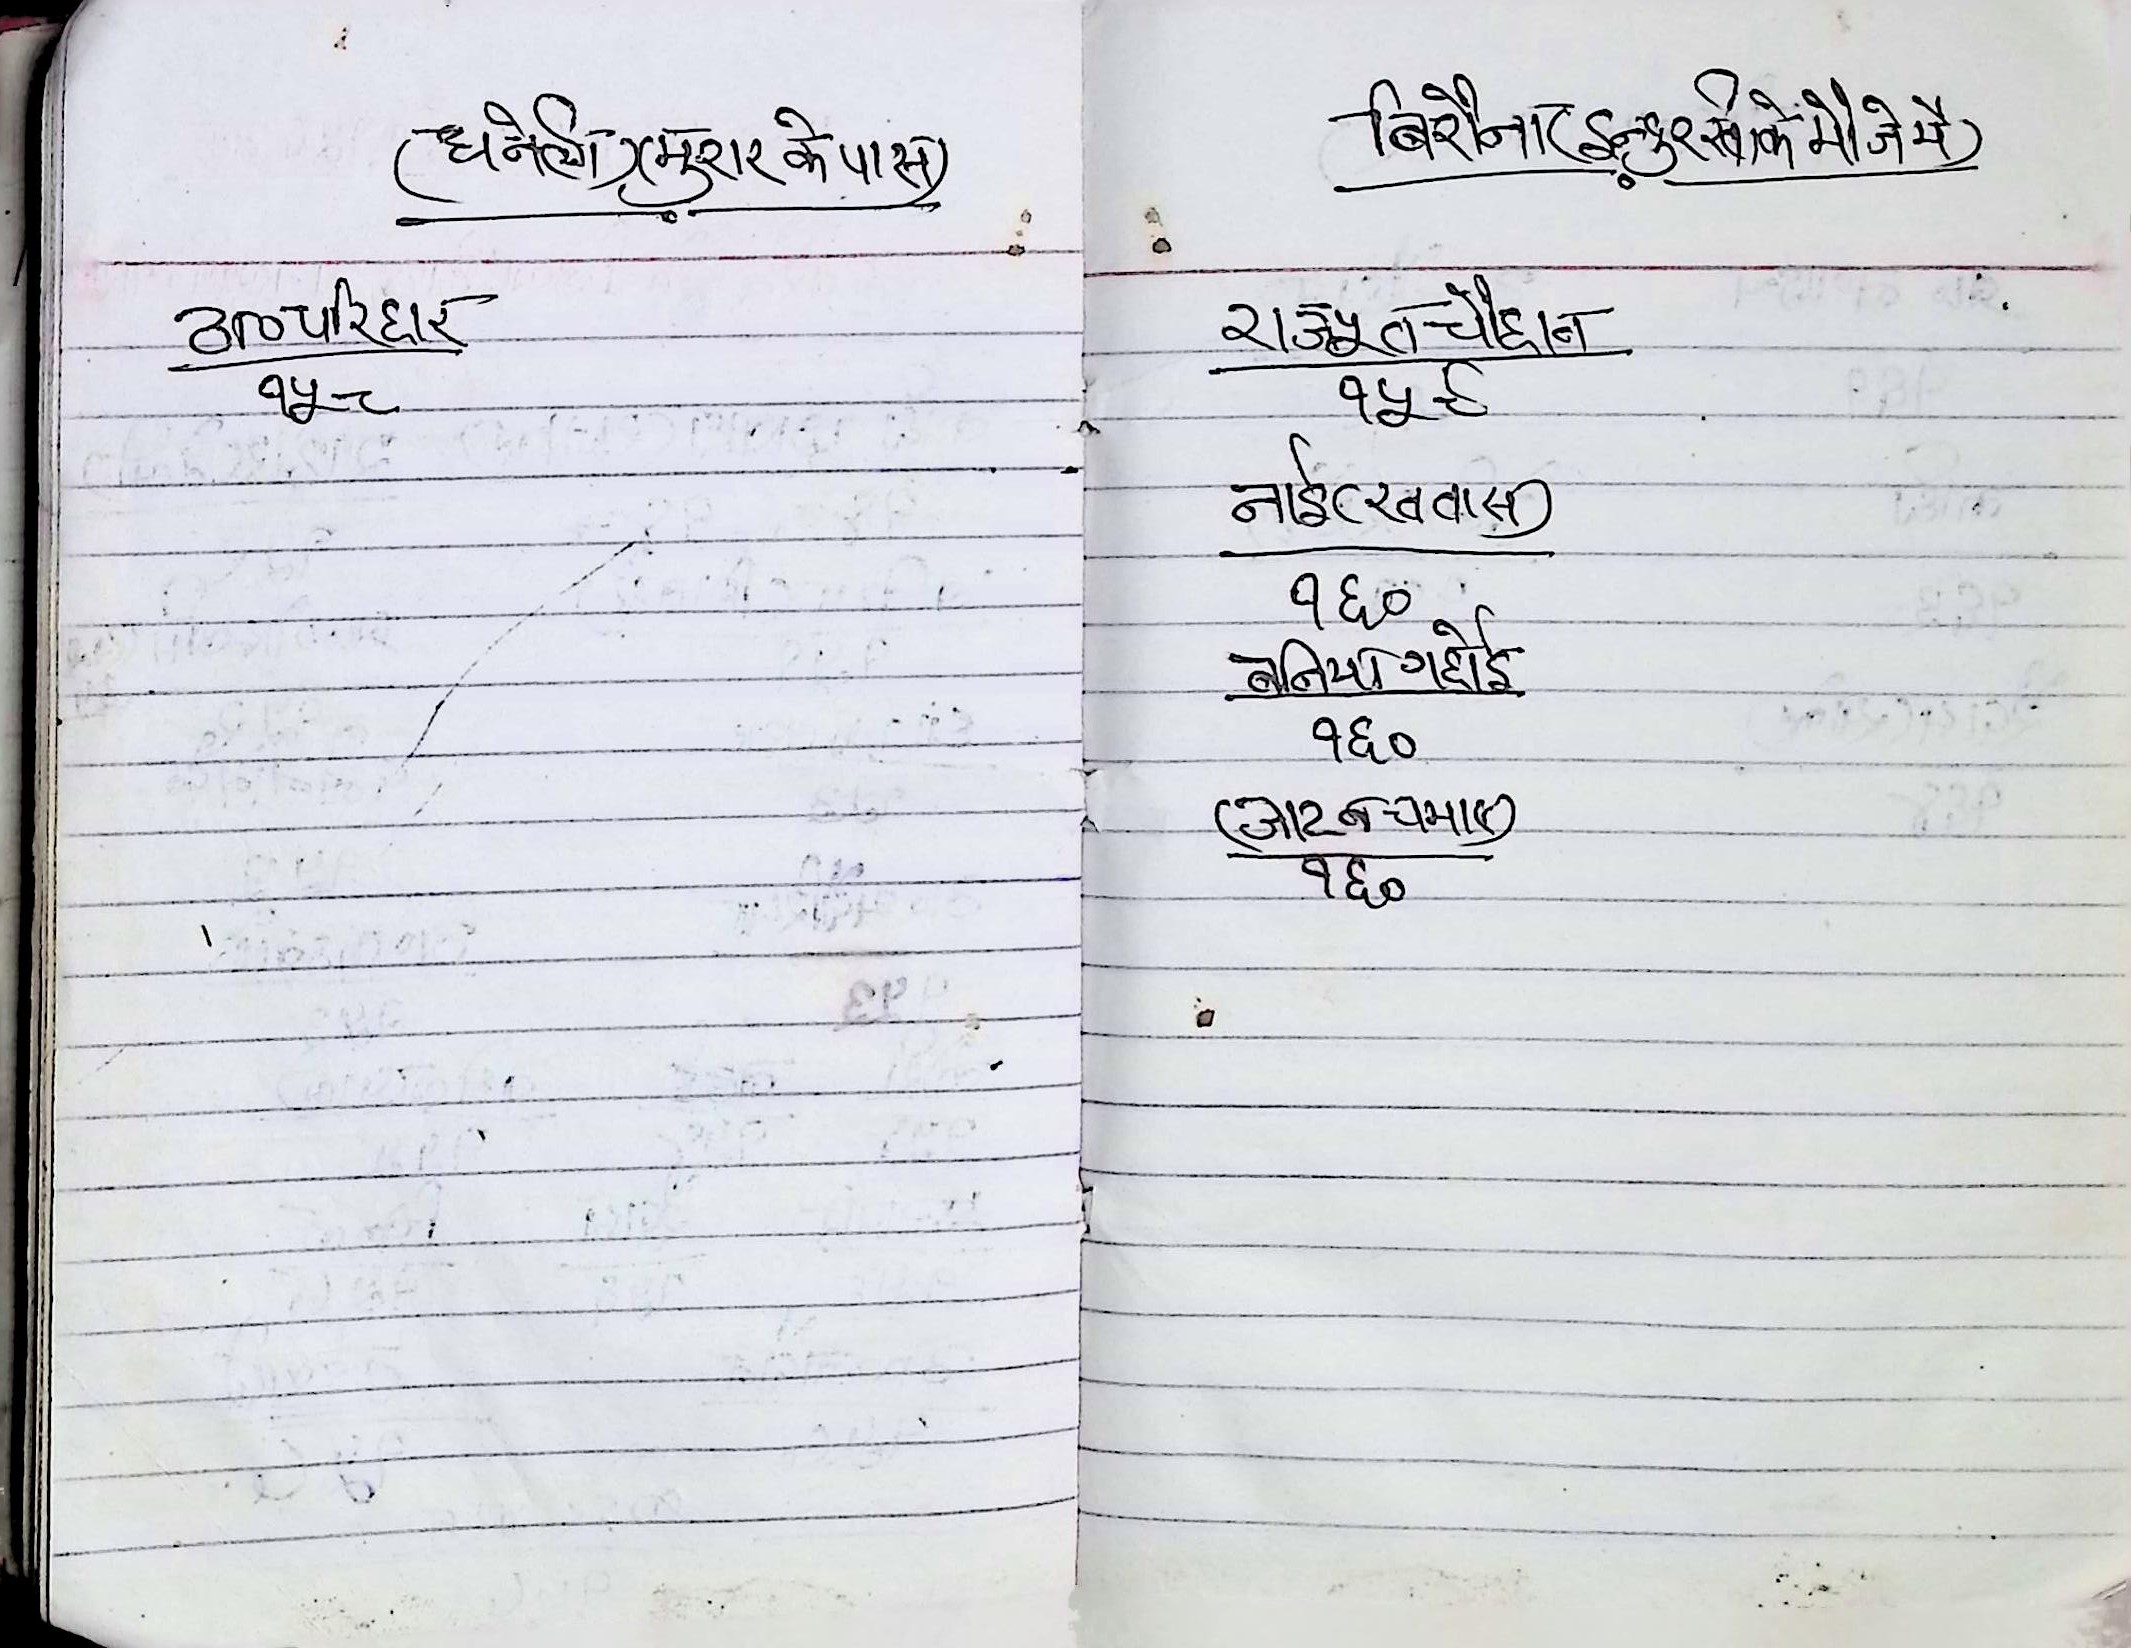 (धनेली)(मुरार के पास)
ठा० परिहार
१५८
बिरौना (इन्दुरखी के मौजे में)
राजपूत चौहान
१५९
नाई (खवास)
१६०
बनिया गहोई
१६०
(जाटव चमार)
१६०